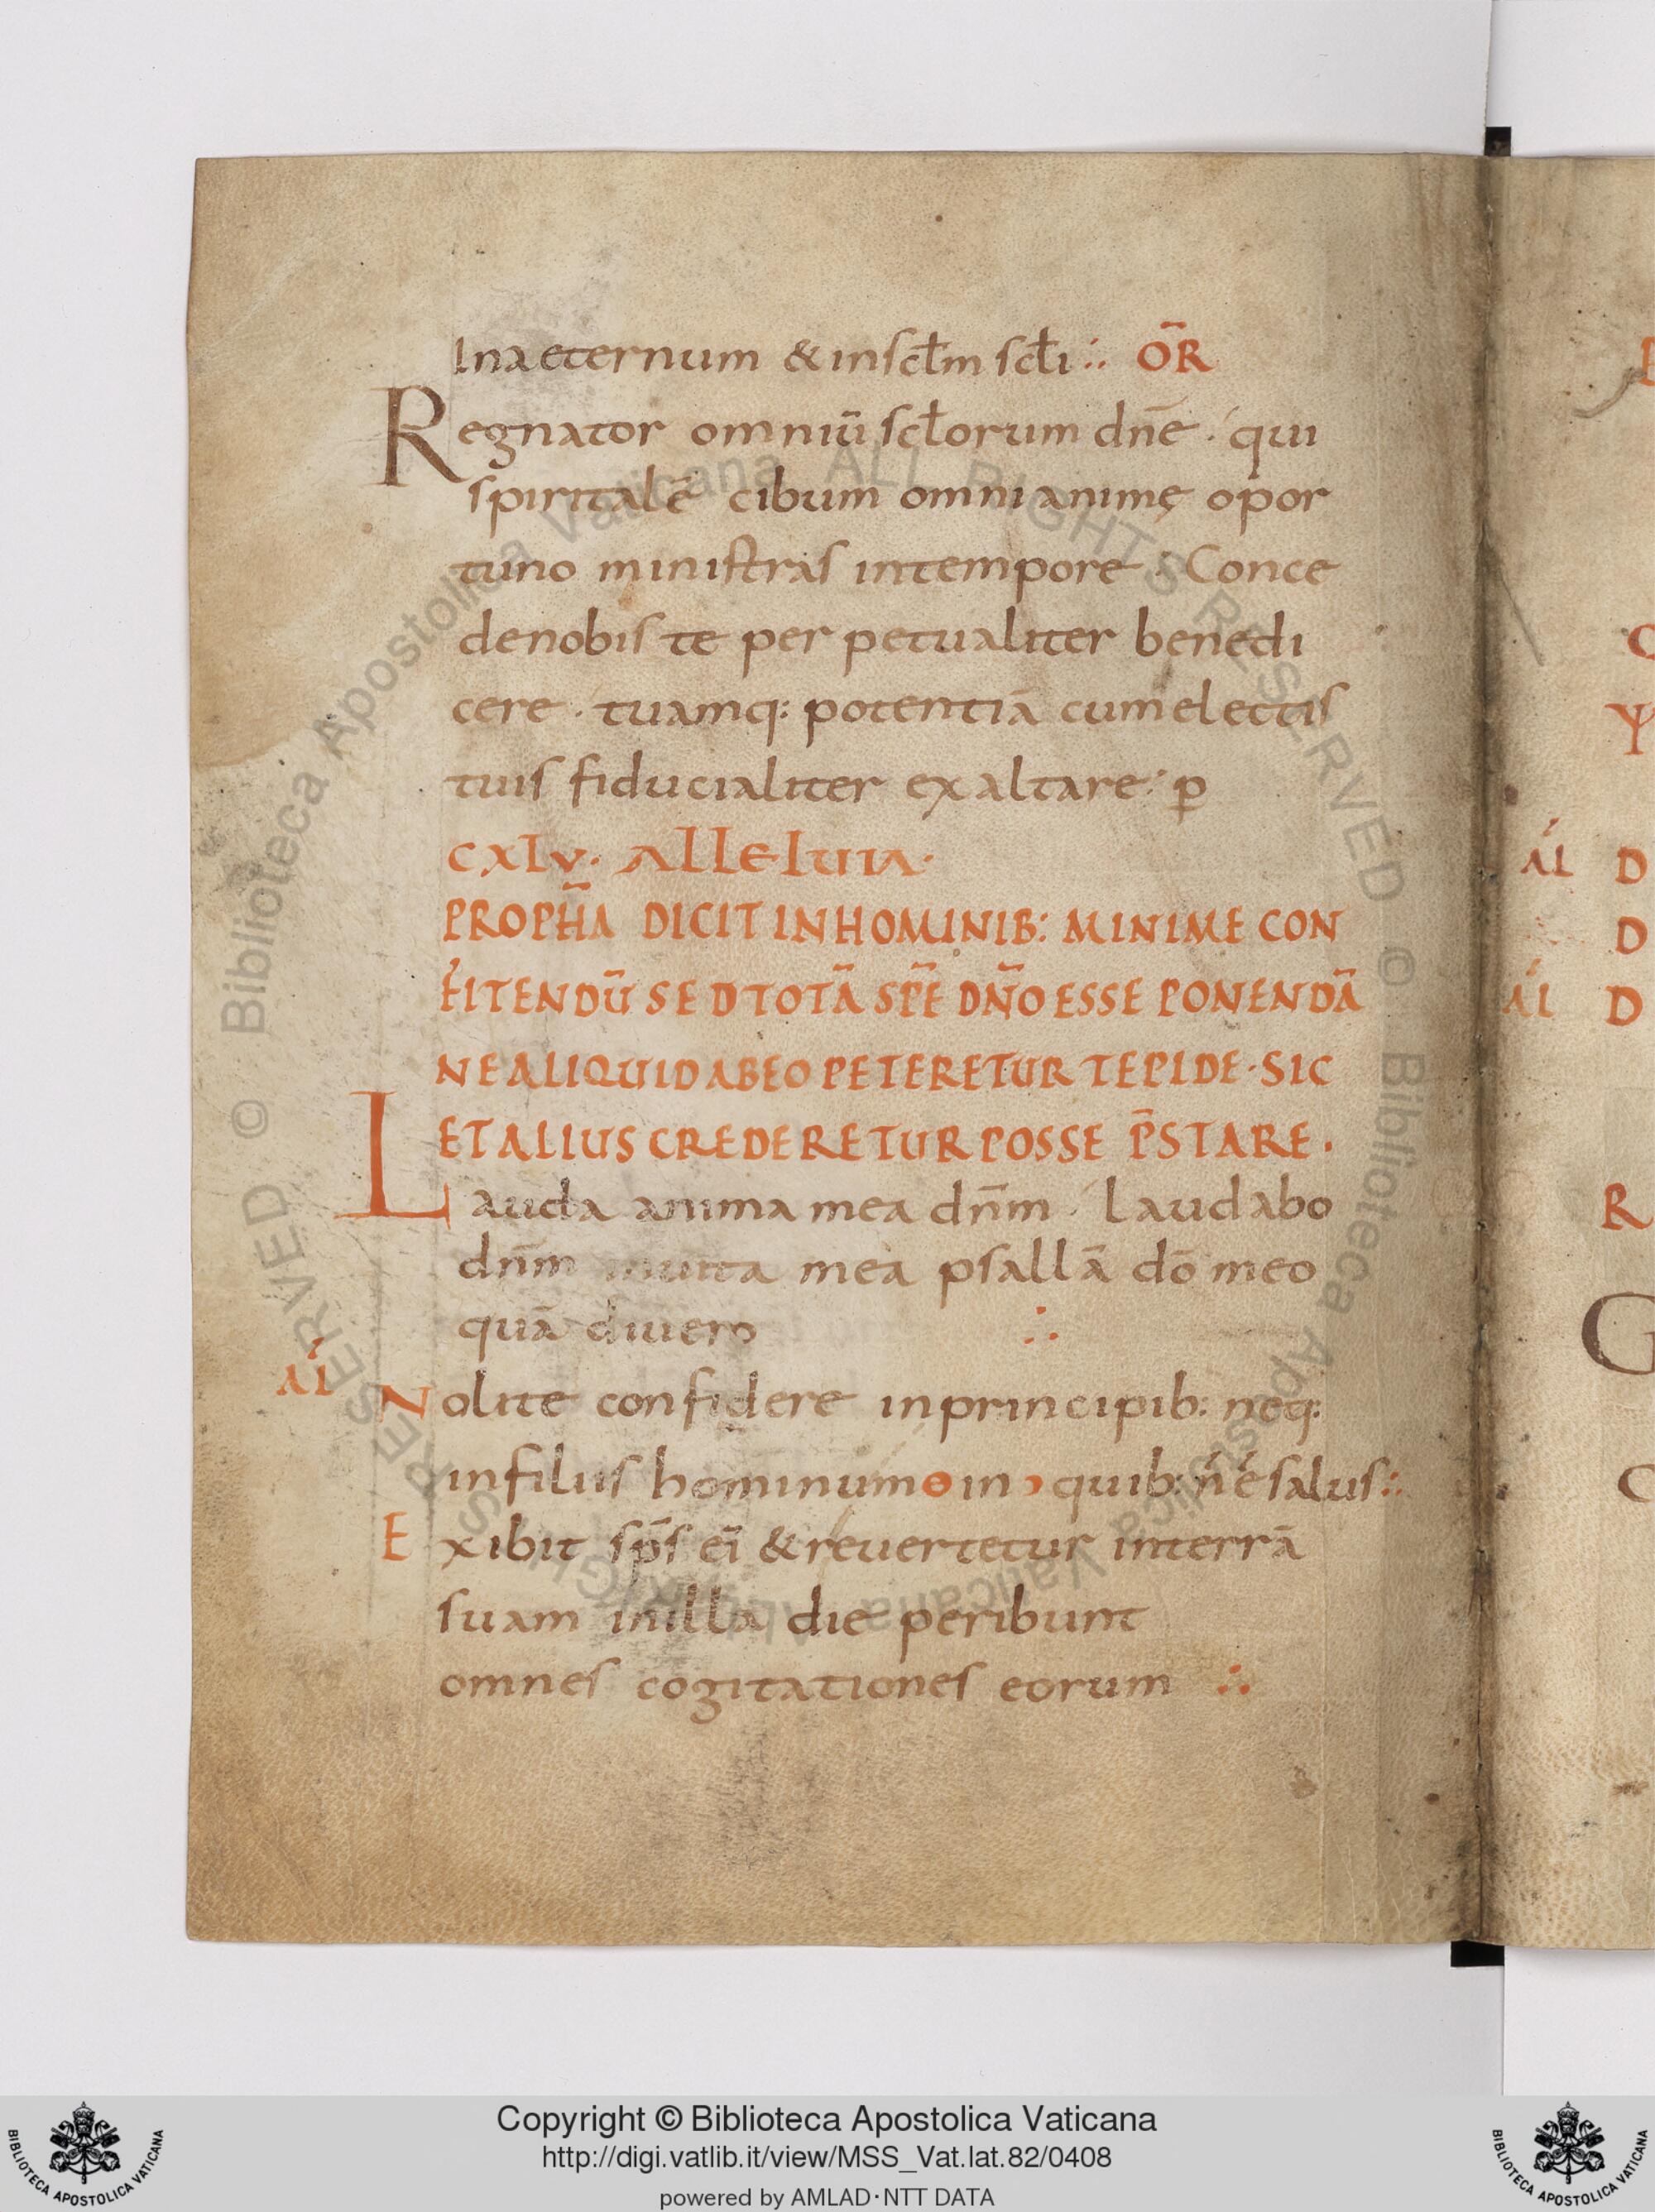 Inaeternum & insclm scli ∴ OR̄
Regnator omniū sclorum dn̄e. qui
spiritalē cibum omni animę opor
tuno ministras intempore. Conce
denobis te per petualiter benedi
cere. tuamq: potentiā cumelectis
tuis fiducialiter exaltare. p̲
CXLV. Alleluia.
PROPH̄A DICIT INHOMINIB: MINIME CON
FITENDŪ SED TOTĀ SPĒ DN̄O ESSE PONENDĀ
NEALIQUIDABEO PETERETUR TEPIDE. SIC
ETALIUS CREDERETUR POSSE P̄STARE.
Lauda anima mea dn̄m. Laudabo
dn̄m inuita mea psallā dō meo
quādiuero ∴
AL
Nolite confidere inprincipib: neq:
infiliis hominum in quib: n̄ ē salus ∴
Exibit sp̄s eī & reuertetur interrā
suam inilla die peribunt
omnes cogitationes eorum ∴
ÁL
D
D
ÁL D
R
G
C
© Biblioteca Apostolica Vaticana ALL RIGHTS RESERVED © Biblioteca Apostolica Vaticana ALL RIGHTS RESERVED
Copyright © Biblioteca Apostolica Vaticana
http://digi.vatlib.it/view/MSS_Vat.lat.82/0408
powered by AMLAD·NTT DATA
BIBLIOTECA APOSTOLICA VATICANA
BIBLIOTECA APOSTOLICA VATICANA